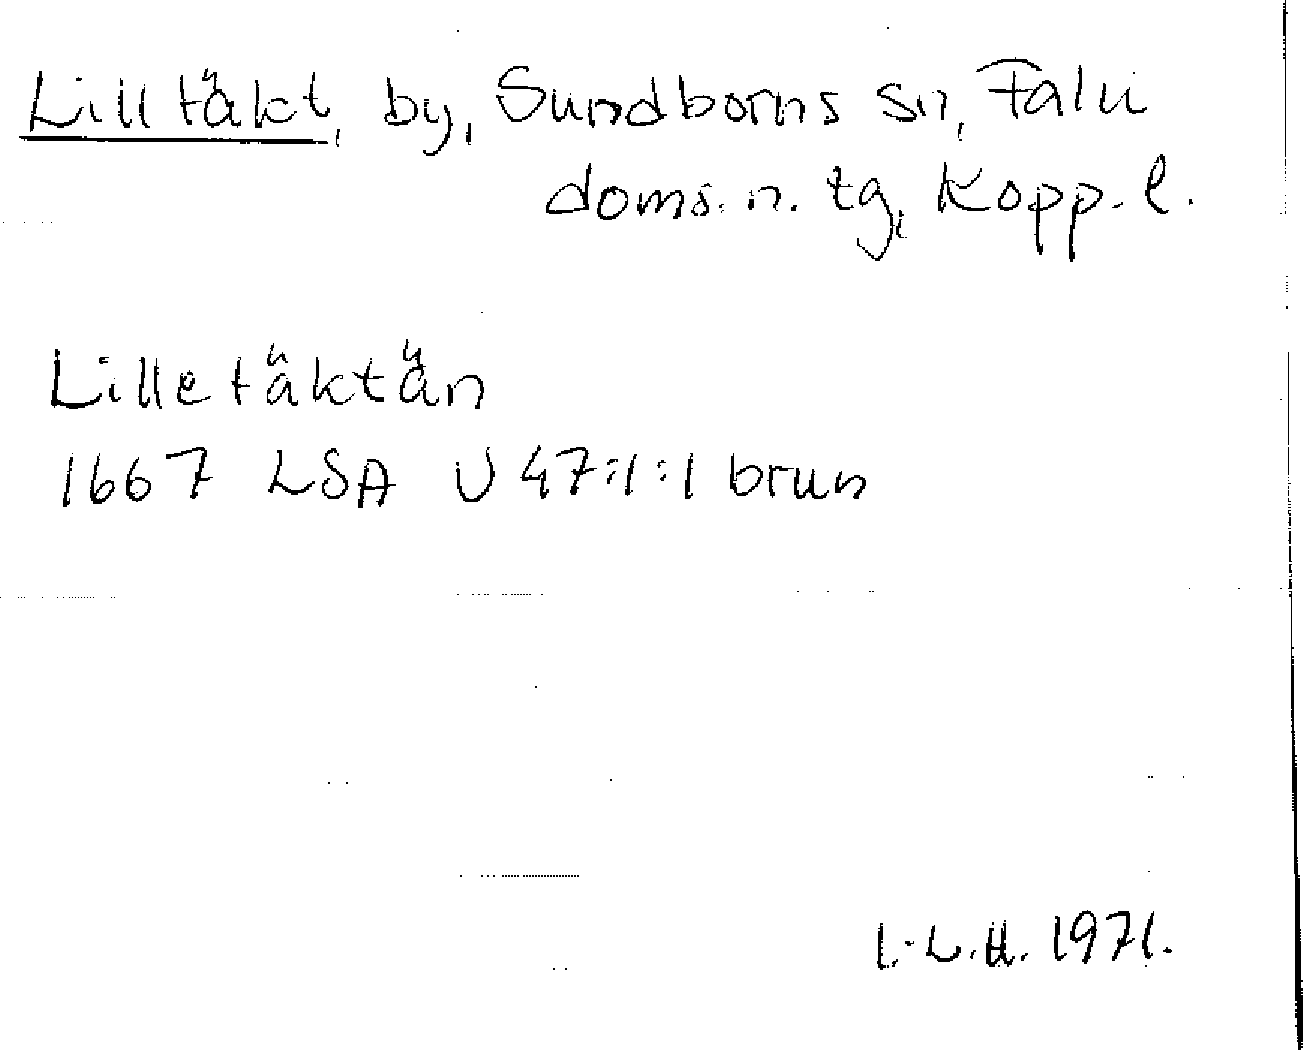 Lilltäkt, by, Sundborns sn, Falu
doms. n. tg, Kopp. l.
Lilletäktän
1667 LSA U 47:1:1 brun
I.-L.H. 1971.